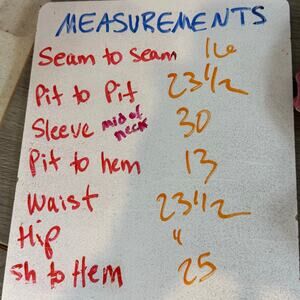 MEASUREMENTS
Seam to seam 16
Pit to Pit 23 1/2
Sleeve mid of neck 30
Pit to hem 13
Waist 23 1/2
Hip "
sh to Hem 25